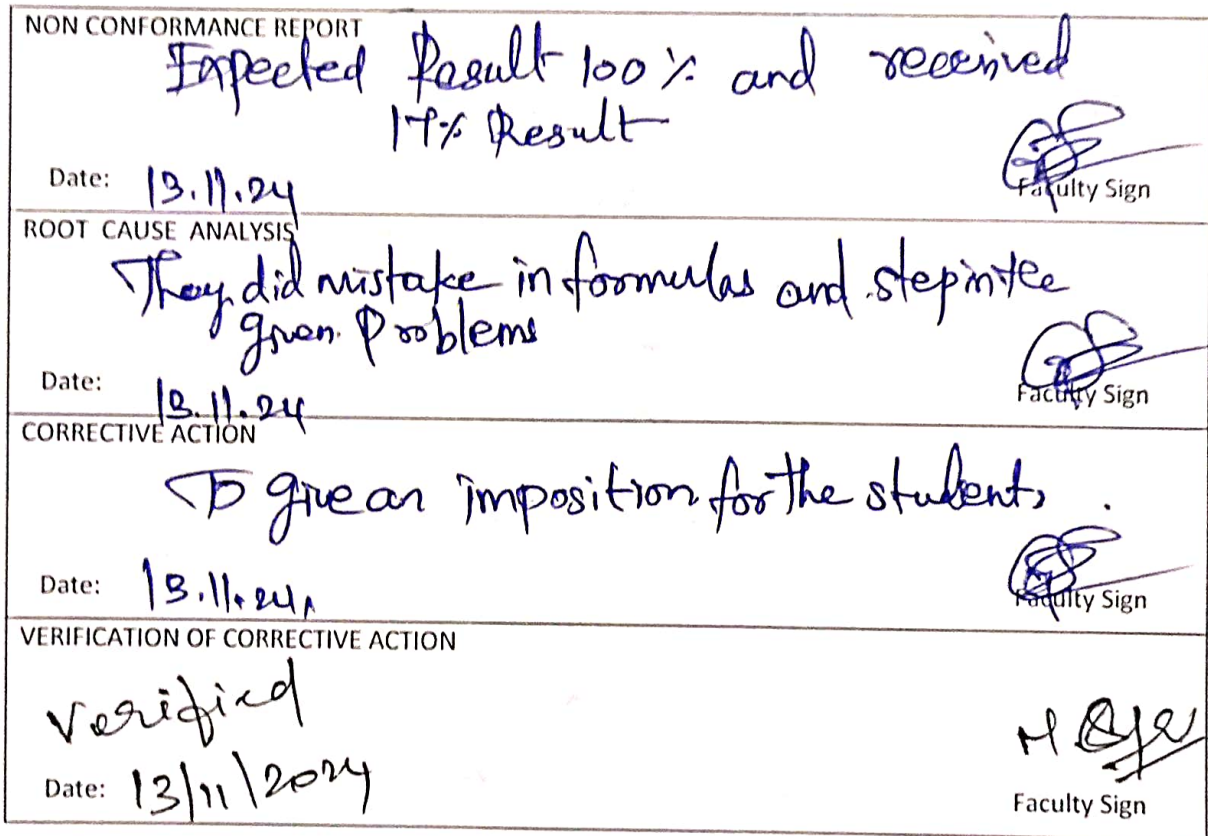 NON CONFORMANCE REPORT
Expected Result 100% and received
17% Result
Date: 13.11.24
Faculty Sign
ROOT CAUSE ANALYSIS
They did mistake in formulas and step in the
given Problems
Date: 13.11.24
Faculty Sign
CORRECTIVE ACTION
To give an imposition for the students.
Date: 13.11.24
Faculty Sign
VERIFICATION OF CORRECTIVE ACTION
Verified
Date: 13/11/2024
Faculty Sign